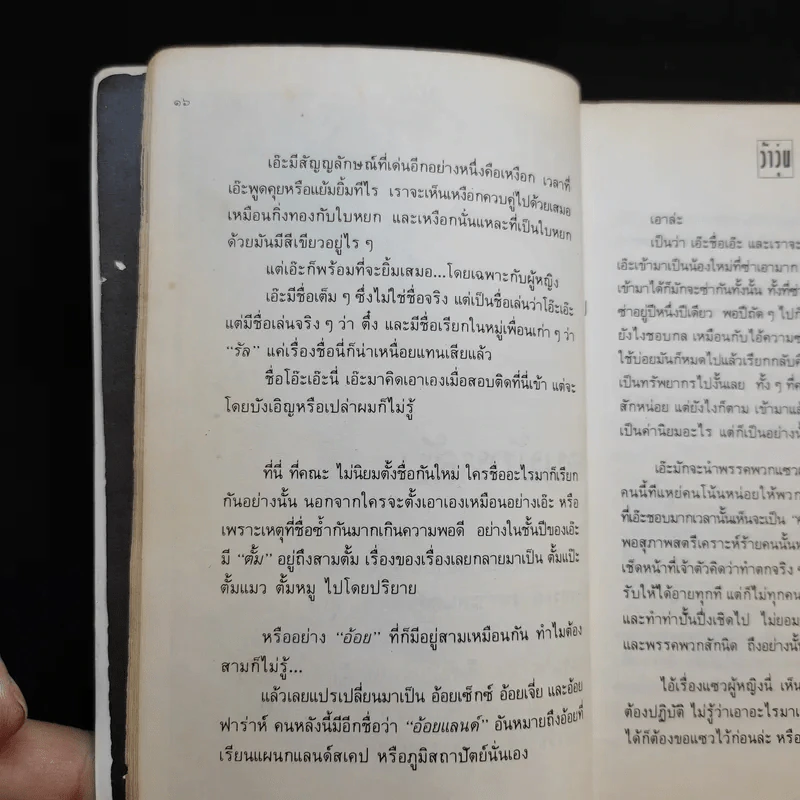 ๑๖
เอ๊ะมีสัญญลักษณ์ที่เด่นอีกอย่างหนึ่งคือเหงือก เวลาที่
เอ๊ะพูดคุยหรือแย้มยิ้มทีไร เราจะเห็นเหงือกควบคู่ไปด้วยเสมอ
เหมือนกิ่งทองกับใบหยก และเหงือกนั่นแหละที่เป็นใบหยก
ด้วยมันมีสีเขียวอยู่ไร ๆ
แต่เอ๊ะก็พร้อมที่จะยิ้มเสมอ...โดยเฉพาะกับผู้หญิง
เอ๊ะมีชื่อเต็ม ๆ ซึ่งไม่ใช่ชื่อจริง แต่เป็นชื่อเล่นว่าโอ๊ะเอ๊ะ
แต่มีชื่อเล่นจริง ๆ ว่า ตึ๋ง และมีชื่อเรียกในหมู่เพื่อนเก่า ๆ ว่า
“รัล” แค่เรื่องชื่อนี่ก็น่าเหนื่อยแทนเสียแล้ว
ชื่อโอ๊ะเอ๊ะนี่ เอ๊ะมาคิดเอาเองเมื่อสอบติดที่นี่เข้า แต่จะ
โดยบังเอิญหรือเปล่าผมก็ไม่รู้
ที่นี่ ที่คณะ ไม่นิยมตั้งชื่อกันใหม่ ใครชื่ออะไรมาก็เรียก
กันอย่างนั้น นอกจากใครจะตั้งเอาเองเหมือนอย่างเอ๊ะ หรือ
เพราะเหตุที่ชื่อซ้ำกันมากเกินความพอดี อย่างในชั้นปีของเอ๊ะ
มี “ตั้ม” อยู่ถึงสามตั้ม เรื่องของเรื่องเลยกลายมาเป็น ตั้มแป๊ะ
ตั้มแมว ตั้มหมู ไปโดยปริยาย
หรืออย่าง “อ้อย” ที่ก็มีอยู่สามเหมือนกัน ทำไมต้อง
สามก็ไม่รู้...
แล้วเลยแปรเปลี่ยนมาเป็น อ้อยเซ็กซ์ อ้อยเจี่ย และอ้อย
ฟาร่าห์ คนหลังนี้มีอีกชื่อว่า “อ้อยแลนด์” อันหมายถึงอ้อยที่
เรียนแผนกแลนด์สเคป หรือภูมิสถาปัตย์นั่นเอง
ว้าวุ่น
เอาล่ะ
เป็นว่า เอ๊ะชื่อเอ๊ะ และเราจะ
เอ๊ะเข้ามาเป็นน้องใหม่ที่ซ่าเอามาก
เข้ามาได้ก็มักจะซ่ากันทั้งนั้น ทั้งที่ซ่า
ซ่าอยู่ปีหนึ่งปีเดียว พอปีถัด ๆ ไปก็
ยังไงชอบกล เหมือนกับไอ้ความซ
ใช้บ่อยมันก็หมดไปแล้วเรียกกลับคื
เป็นทรัพยากรไปงั้นเลย ทั้ง ๆ ที่ค
สักหน่อย แต่ยังไงก็ตาม เข้ามาแล้
เป็นค่านิยมอะไร แต่ก็เป็นอย่างนั้
เอ๊ะมักจะนำพรรคพวกแซว
คนนี้ทีแหย่คนโน้นหน่อยให้พวก
ที่เอ๊ะชอบมากเวลานั้นเห็นจะเป็น
พอสุภาพสตรีเคราะห์ร้ายคนนั้นห
เช็ดหน้าที่เจ้าตัวคิดว่าทำตกจริง ๆ
รับให้ได้อายทุกที แต่ก็ไม่ทุกคน
และทำท่าปั้นปึ่งเชิดไป ไม่ยอม
และพรรคพวกสักนิด ถึงอย่างนั้
ไอ้เรื่องแซวผู้หญิงนี่ เห็น
ต้องปฏิบัติ ไม่รู้ว่าเอาอะไรมา
ได้ก็ต้องขอแซวไว้ก่อนล่ะ หรือ